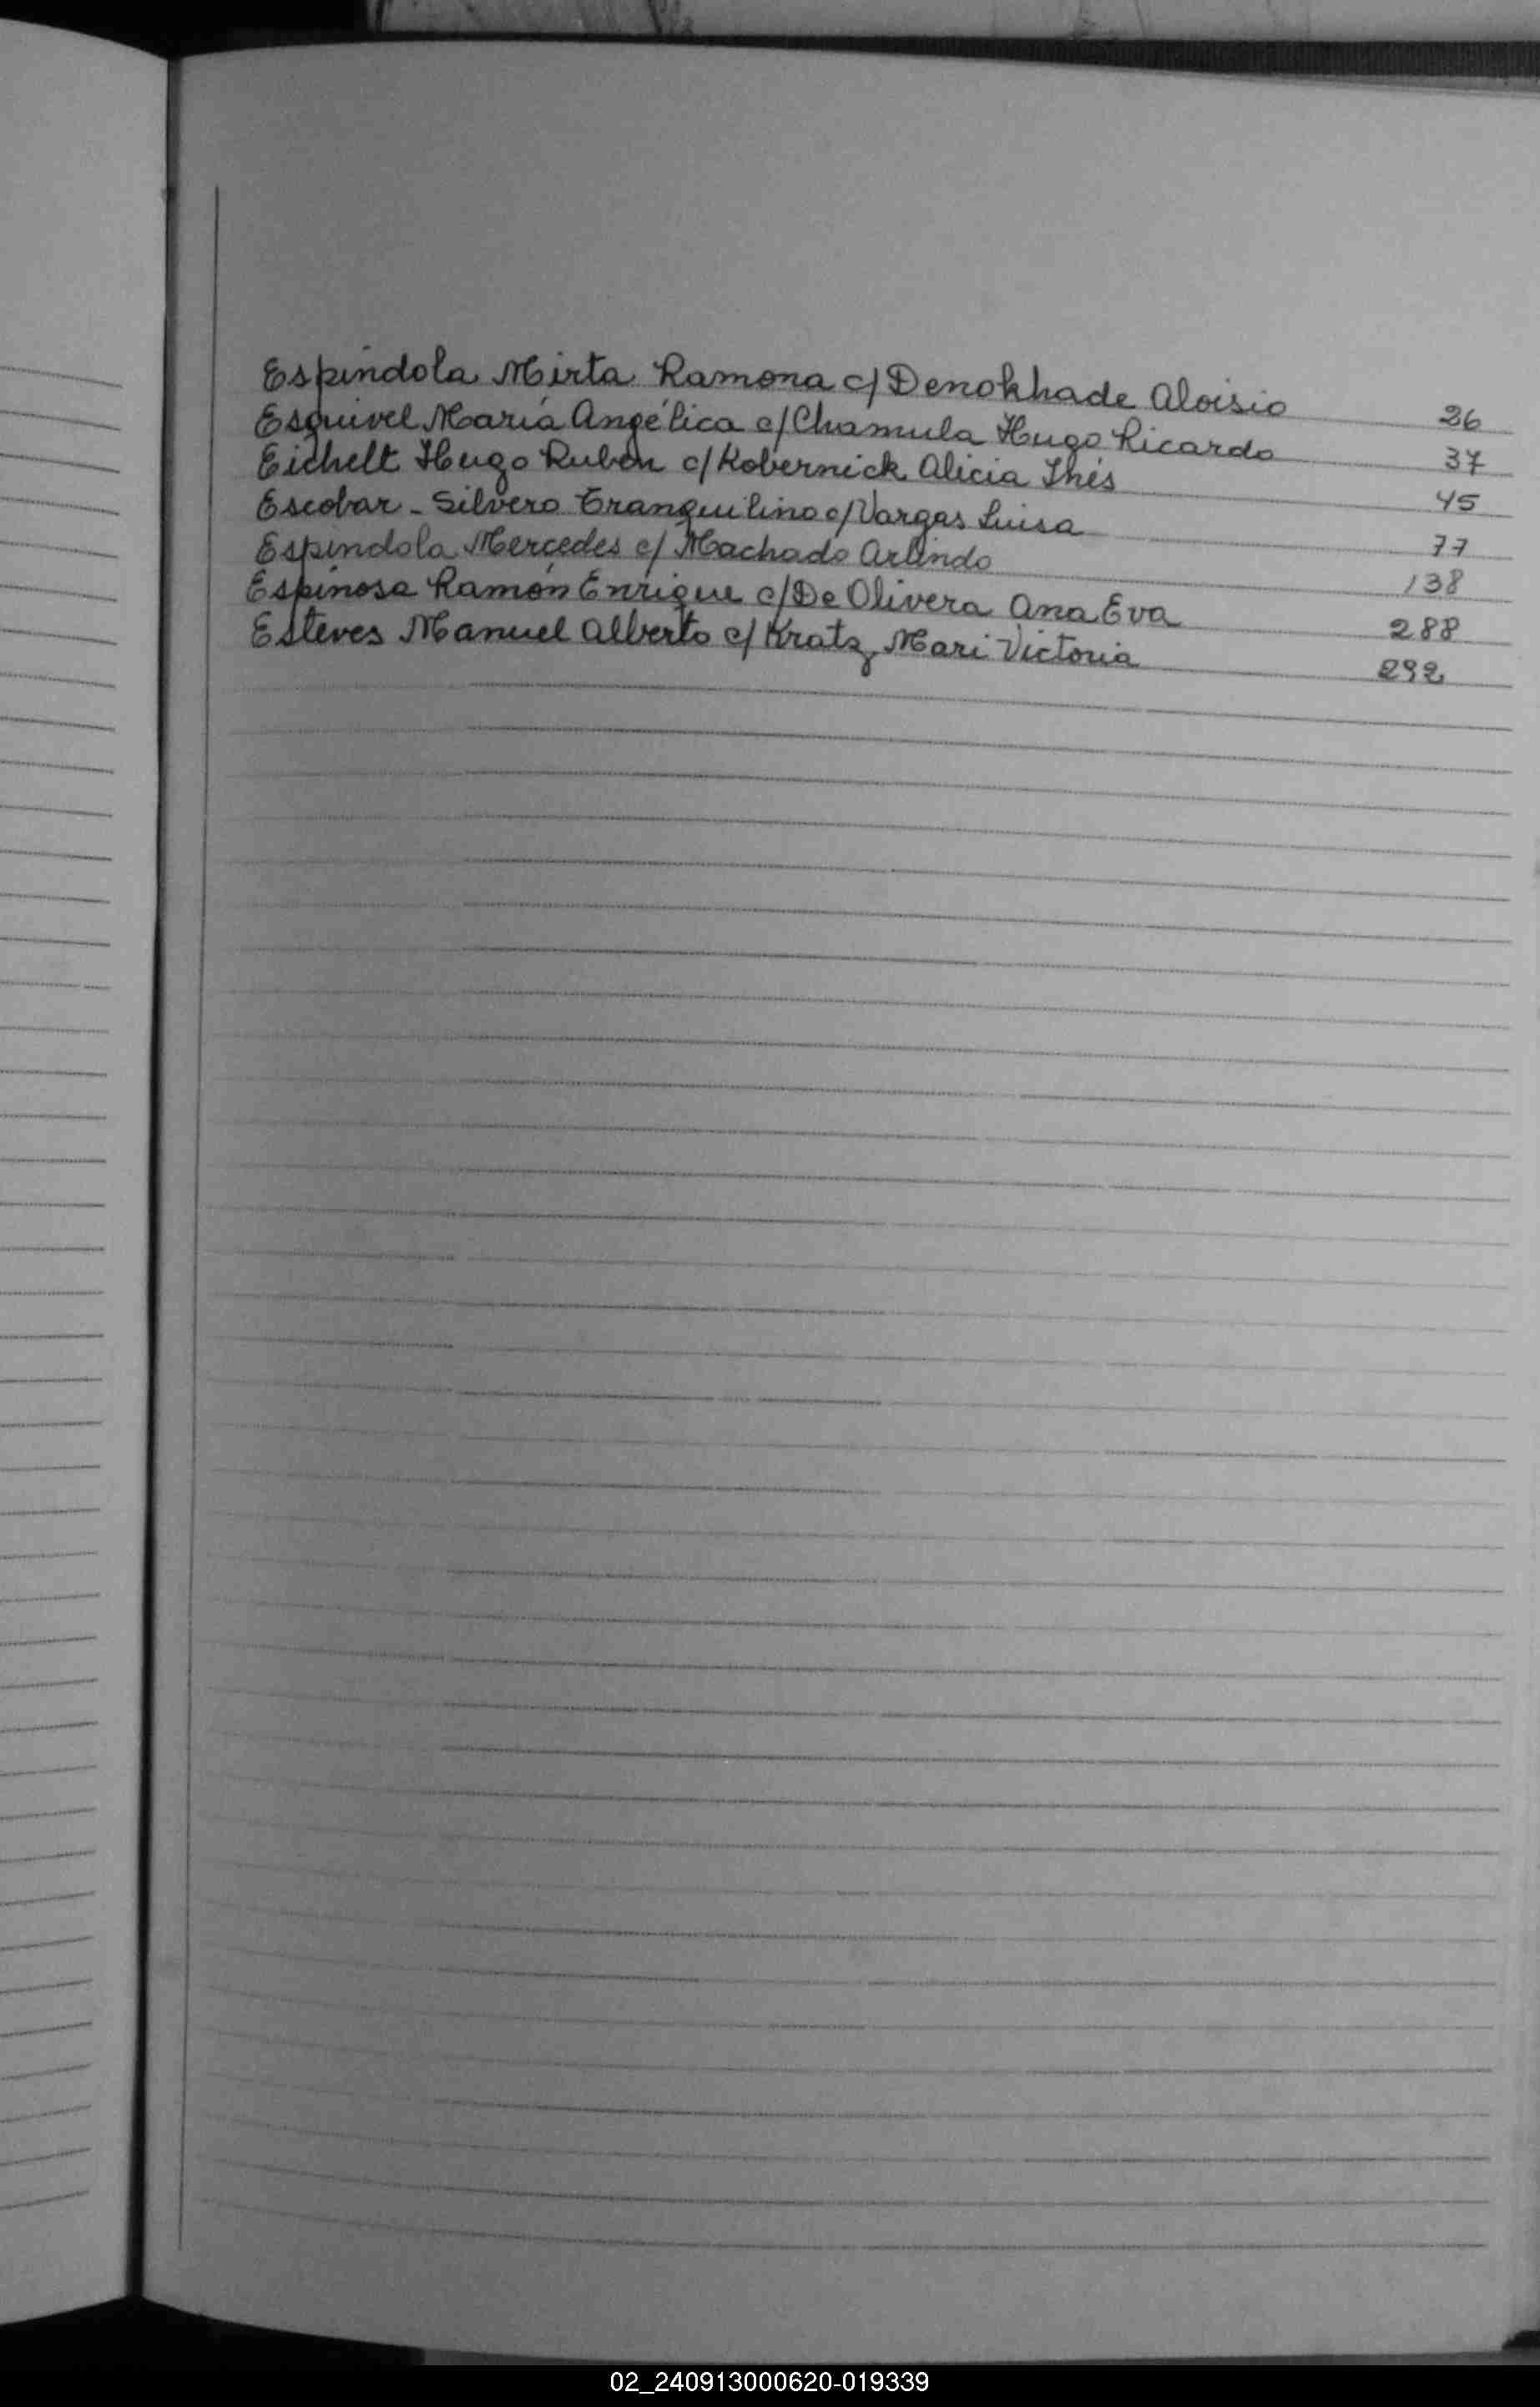 Espíndola Mirta Ramona c/ Denokhade Aloisio 26
Esquivel María Angélica c/ Chamula Hugo Ricardo 37
Eichelt Hugo Ruben c/ Kobernick Alicia Inés 45
Escobar - Silvero Tranquilino c/ Vargas Luisa 77
Espíndola Mercedes c/ Machado Arlindo 138
Espinosa Ramón Enrique c/ De Olivera Ana Eva 288
Esteves Manuel Alberto c/ Kratz Mari Victoria 292
02_240913000620-019339